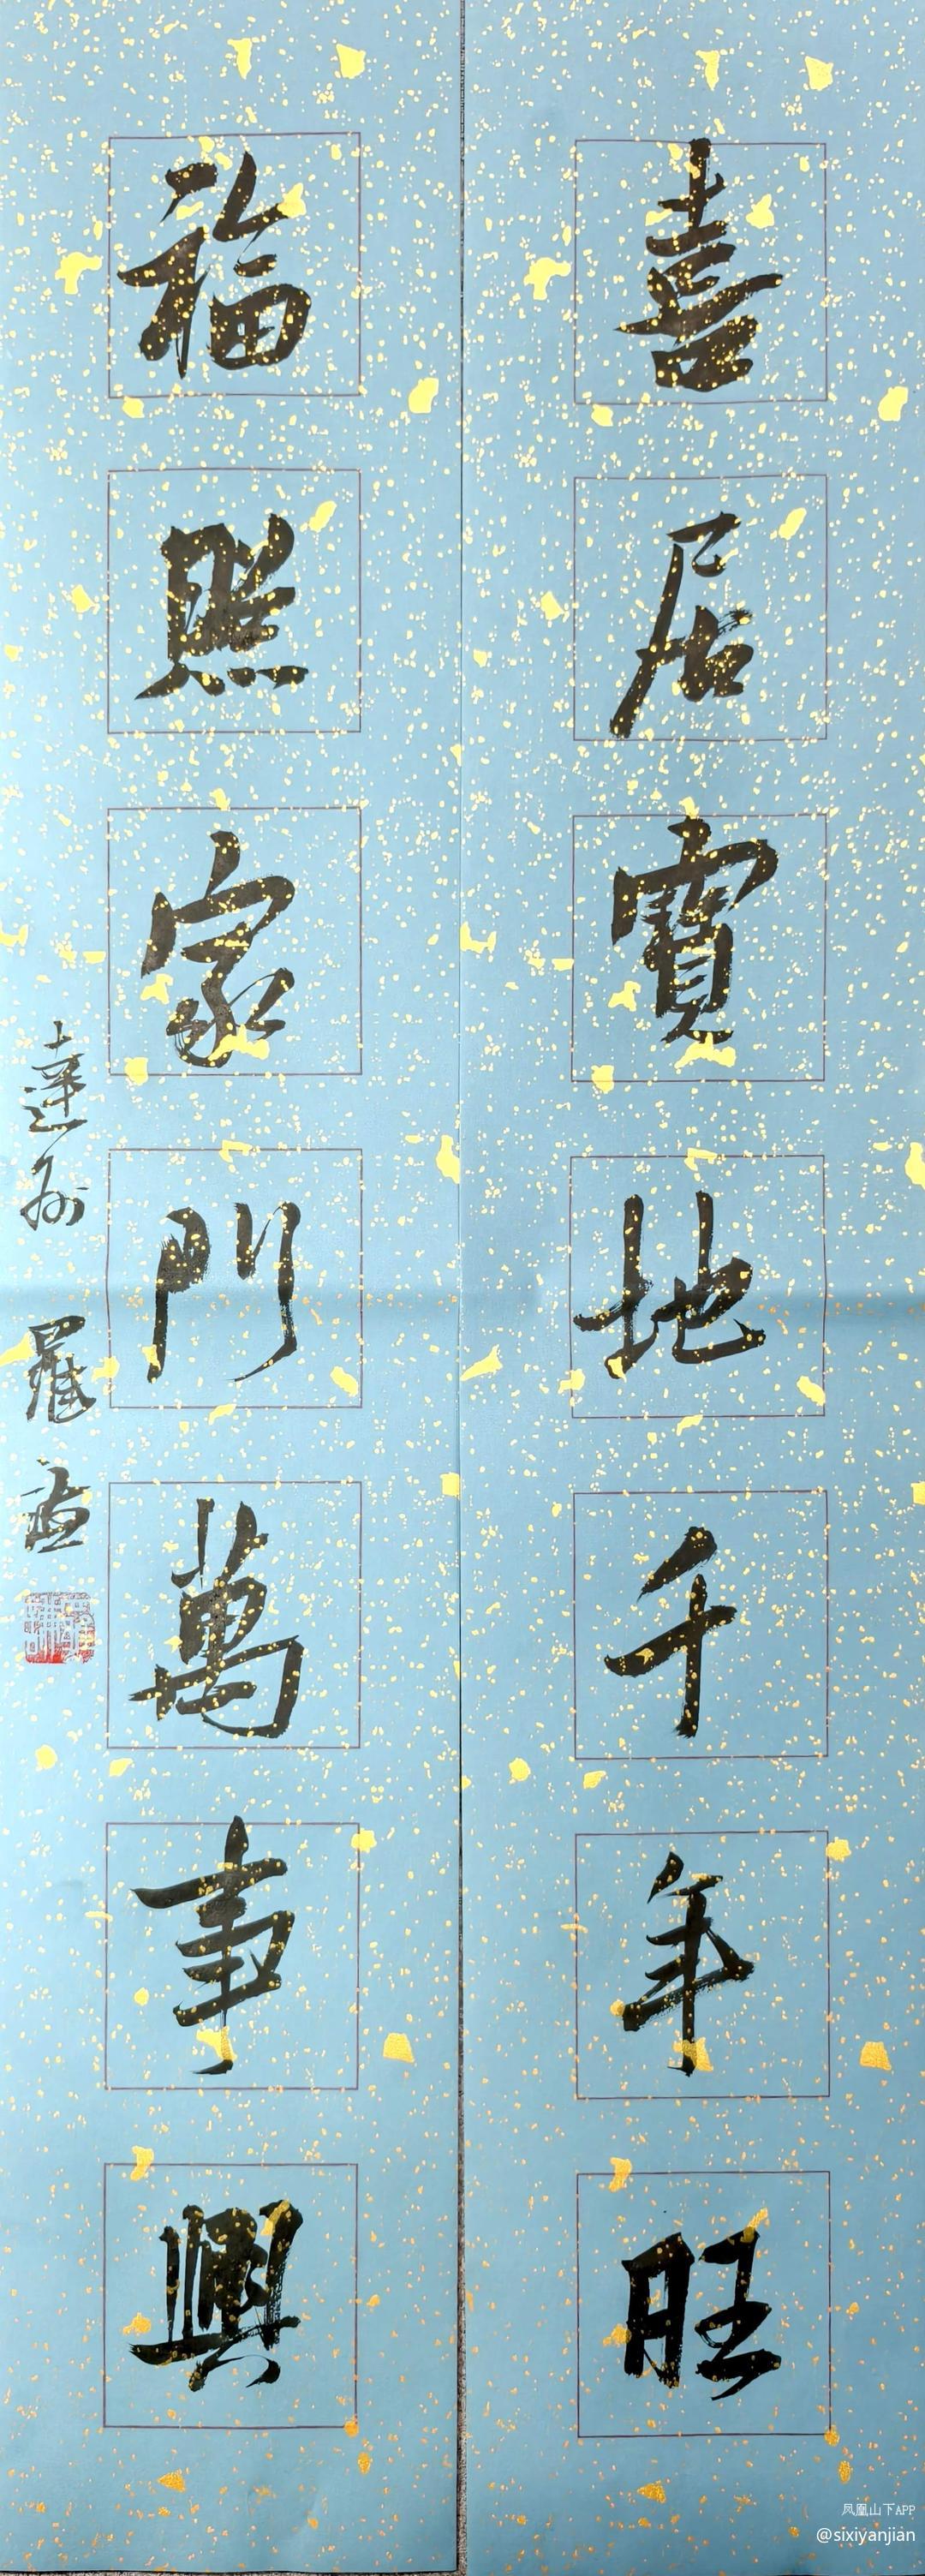 喜居寶地千年旺
福照家門萬事興
達州 羅直
凤凰山下APP
@sixiyanjian